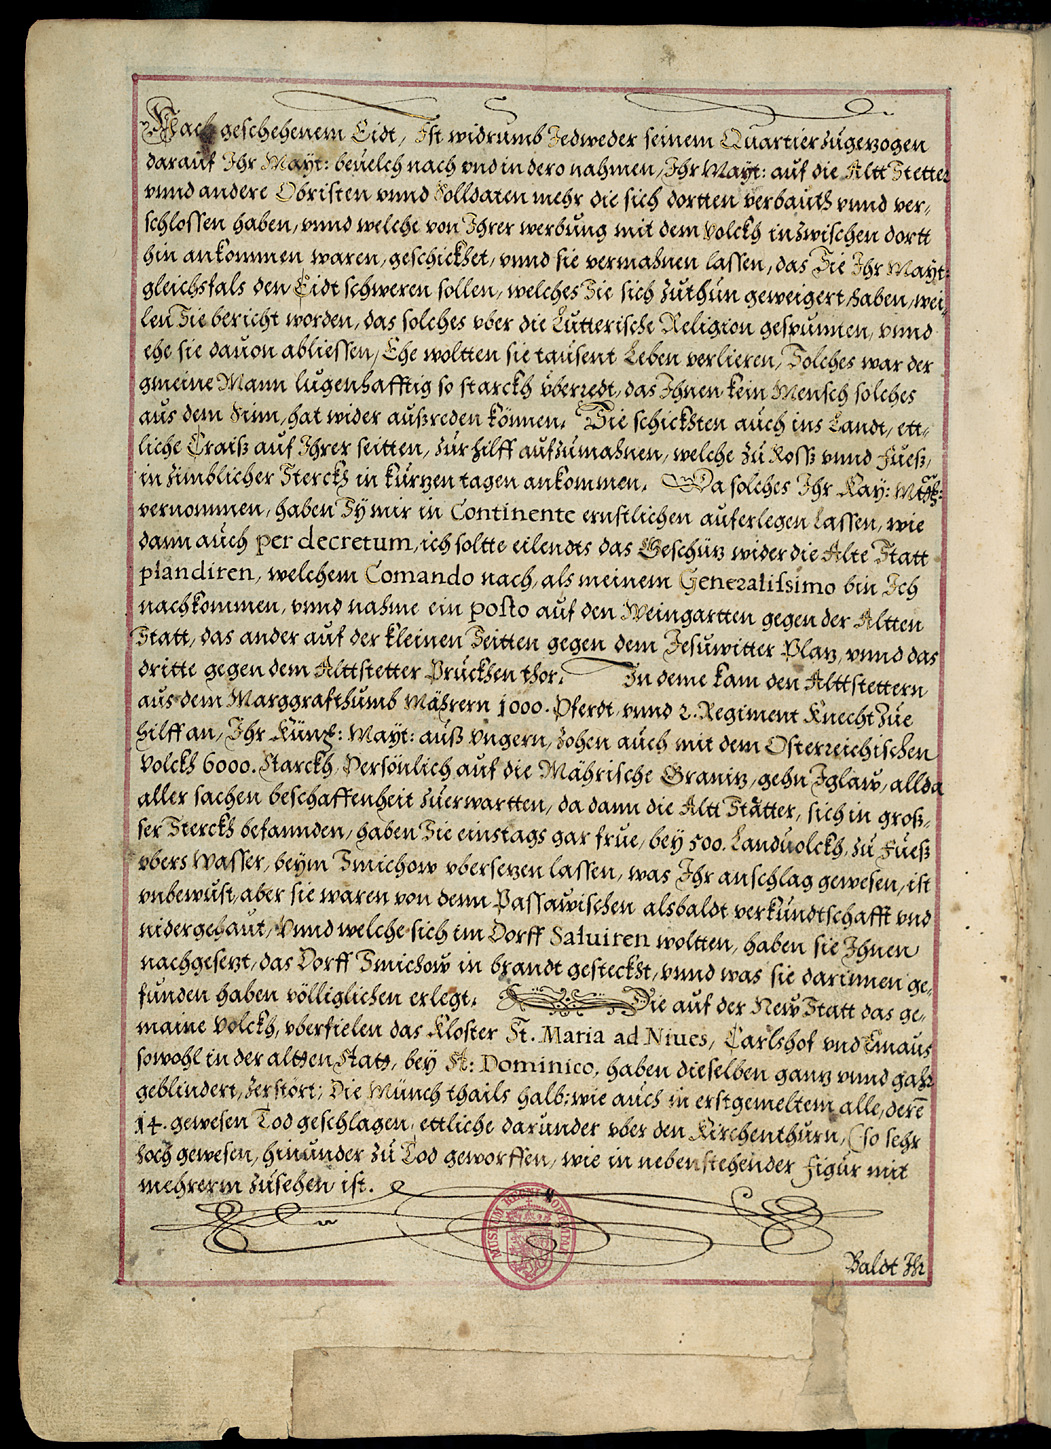 Nach geschehenem Eidt, Ist widrumb Jedweder seinem Quartier zugezogen
darauf Ihr Mayt: beuelch nach vnd in dero nahmen, Ihr Mayt: auf die Altt Stetter
vnnd andere Obristen vnnd Solldaten mehr die sich dortten verbauth vnnd ver,
schlossen haben, vnnd welche von Ihrer werbung mit dem Volckh inzwischen dortt
hin ankommen waren, geschickhet, vnnd sie vermahnen lassen, das Sie Ihr Mayt:
gleichsfals den Eidt schweren sollen, welches Sie sich zuthun geweigert haben, wei,
len Sie bericht worden, das solches vber die Lutterische Religion gesponnen, vnnd
ehe sie dauon abliessen, Ehe woltten sie tausent Leben verlieren, Solches war der
gmeine Mann lugenhafftig so starckh vberredt, das Ihnen kein Mensch solches
aus dem Sinn, hat wider außreden können. Sie schickhten auch ins Landt, ett,
liche Craiß auf Ihrer seitten, zur hilff aufzumahnen, welche zu Ross vnnd Fueß,
in zimblicher Sterckh in kurtzen tagen ankommen. Da solches Ihr Kay: Mtt:
vernommen, haben Sy mir in Continente ernstlichen auferlegen Lassen, wie
dann auch per decretum, ich soltte eilendts das Geschütz wider die Alte Statt
plandiren, welchem Comando nach, als meinem Generalissimo bin Ich
nachkommen, vnnd nahme ein posto auf den Weingartten gegen der Altten
Statt, das ander auf der kleinen Seitten gegen dem Jesuwitter Platz, vnnd das
dritte gegen dem Alttstetter Pruckhen thor. In deme kam den Alttstettern
aus dem Marggrafthumb Mährern 1000. Pferdt vnnd 2. Regiment Knecht zue
hilff an, Ihr Küng: Mayt: auß Vngern, zohen auch mit dem Osterreichischen
Volckh 6000. Starckh, Persönlich auf die Mährische Granitz, gehn Iglaw, allda
aller sachen beschaffenheit zuerwartten, da dann die Altt Stätter, sich in groß,
ser Sterckh befannden, haben Sie einstags gar frue, bey 500. Landuolckh, zu Fueß
vbers Wasser, beym Smichow vbersetzen lassen, was Ihr anschlag gewesen, ist
vnbewust, aber sie waren von denn Passawischen alsbaldt verkundtschafft vnd
nidergehaut, Vnnd welche sich im Dorff Saluiren woltten, haben sie Ihnen
nachgesetzt, das Dorff Smichow in brandt gesteckht, vnnd was sie darinnen ge,
funden haben völliglichen erlegt. Die auf der New Statt das ge,
maine Volckh, vberfielen das Kloster St. Maria ad Niues, Carlshof vnd Emaus
sowohl in der altten Statt, bey St: Dominico, haben dieselben gantz vnnd gahr
geblindert, zerstört, Die Münch thails halb: wie auch in erstgemeltem alle, derē
14. gewesen Tod geschlagen, ettliche darunder vber den Kirchenthurn, (so sehr
hoch gewesen, hinunder zu Tod geworffen, wie in nebenstehender figur mit
mehrerm zusehen ist.
MUSEUM REGNI BOHEMIAE
Baldt Ih